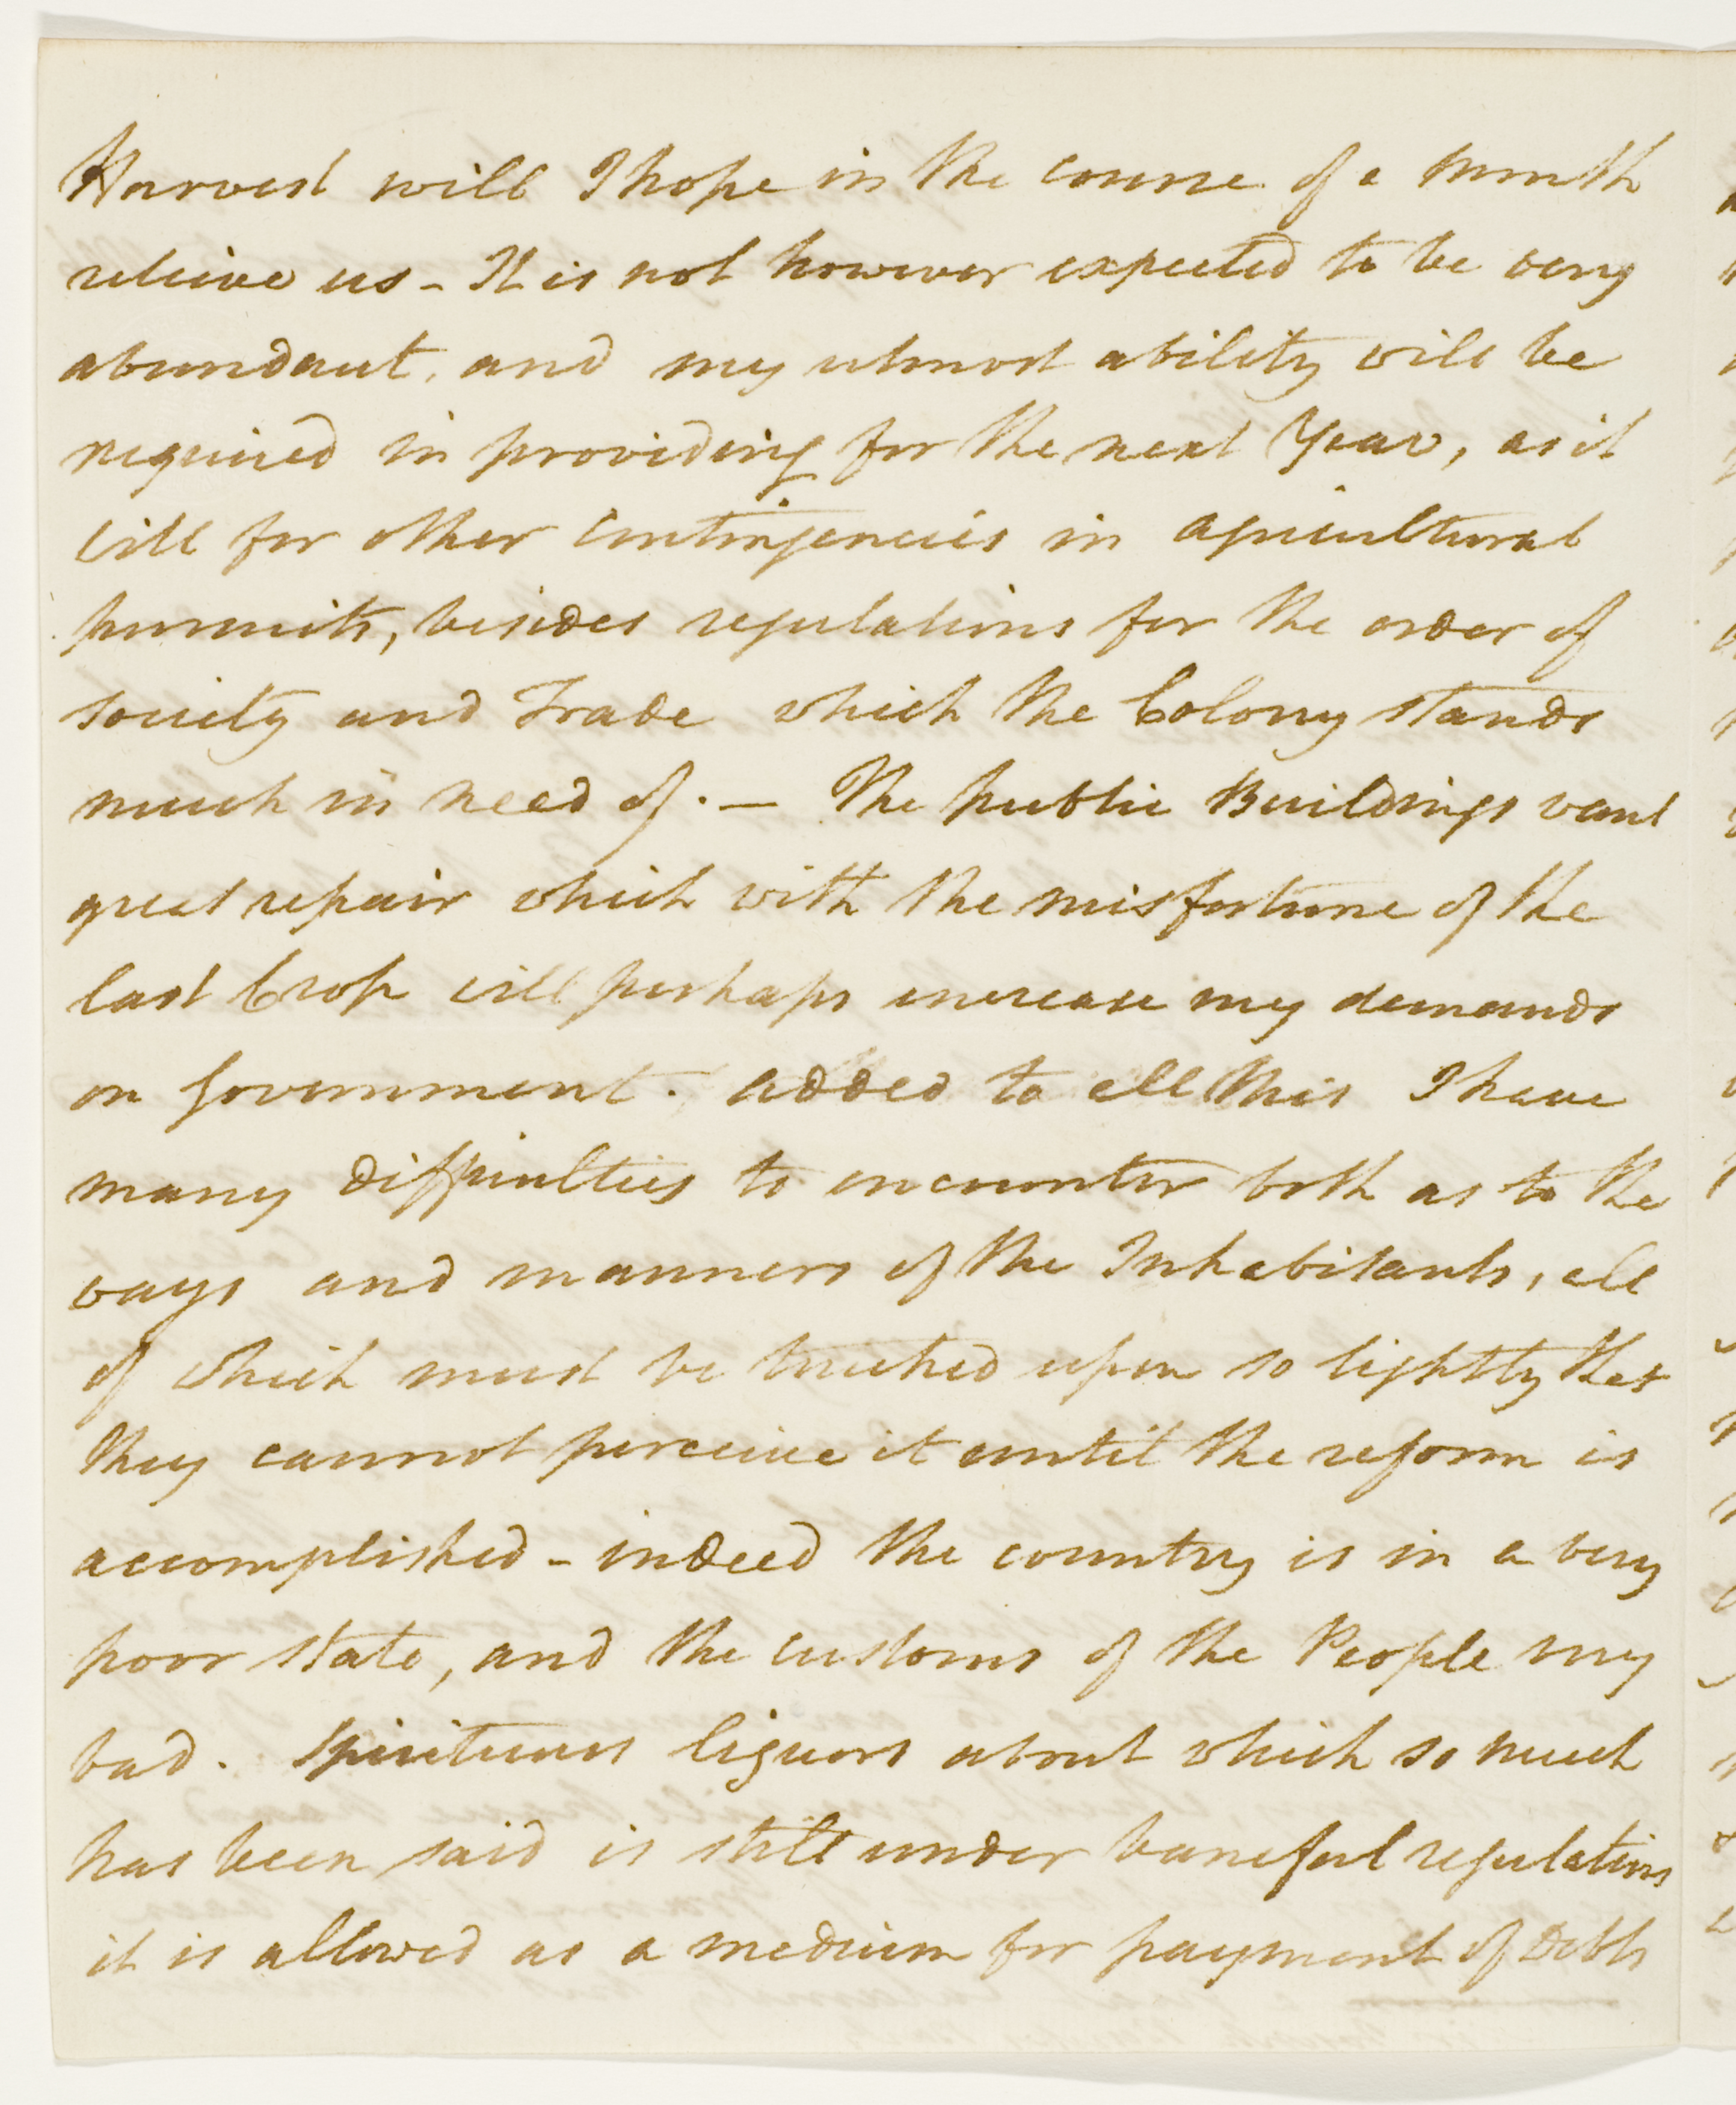 Harvest will I hope in the course of a month
relieve us - It is not however expected to be very
abundant, and my utmost ability will be
required in providing for the next Year, as it
will for other contingencies in agricultural
pursuits, besides regulations for the order of
society and Trade which the Colony stands
much in need of. — The public Buildings want
great repair which with the misfortune of the
last Crop will perhaps increase my demands
on Government. added to all this I have
many difficulties to encounter both as to the
ways and manners of the Inhabitants, all
of which must be touched upon so lightly that
they cannot perceive it until the reform is
accomplished - indeed the country is in a very
poor state, and the customs of the People very
bad. Spirituous liquors about which so much
has been said is still under baneful regulations
it is allowed as a medium for payment of Debts